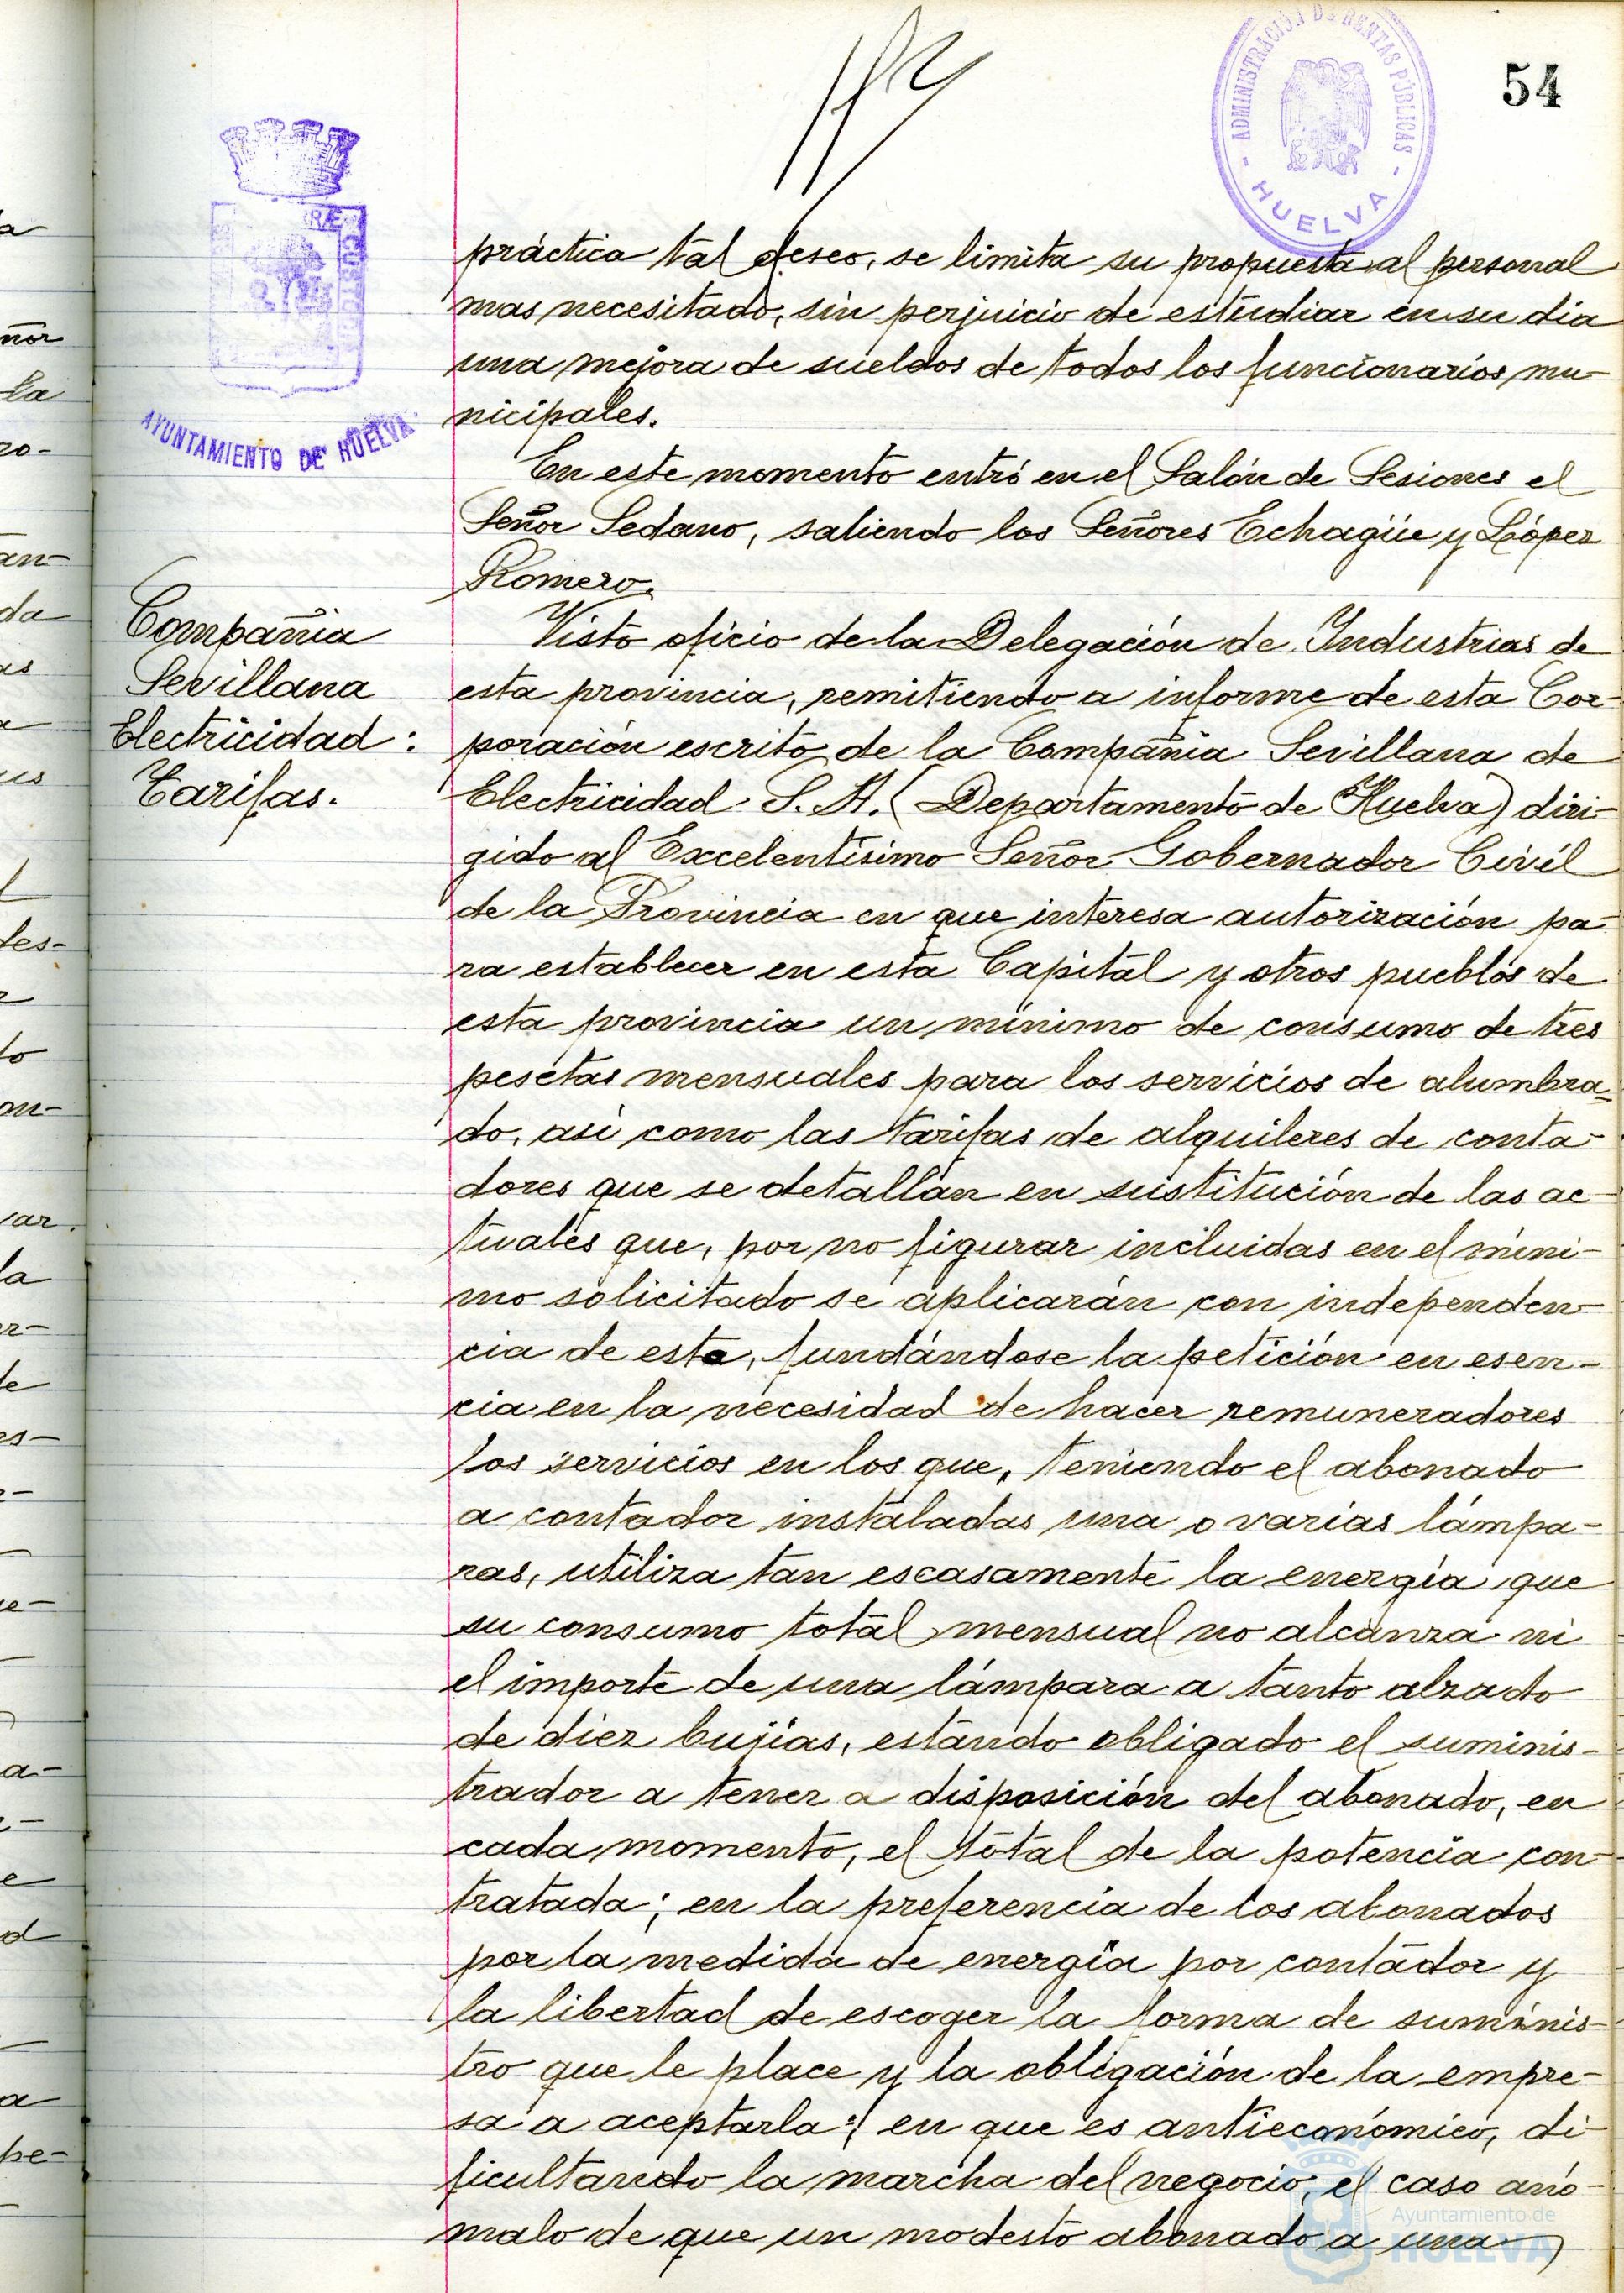 54
ADMINISTRACIÓN DE RENTAS PÚBLICAS
- HUELVA -
AYUNTAMIENTO DE HUELVA
práctica tal deseo, se limita su propuesta al personal
mas necesitado, sin perjuicio de estudiar en su dia
una mejora de sueldos de todos los funcionarios mu-
nicipales.
En este momento entró en el Salón de Sesiones el
Señor Sedano, saliendo los Señores Echagüe y López
Romero.
Compañia
Sevillana
Electricidad:
Tarifas.
Visto oficio de la Delegación de Industrias de
esta provincia, remitiendo a informe de esta Cor-
poración escrito de la Compañia Sevillana de
Electricidad S. A. (Departamento de Huelva) diri-
gido al Excelentísimo Señor Gobernador Civil
de la Provincia en que interesa autorización pa-
ra establecer en esta Capital y otros pueblos de
esta provincia un mínimo de consumo de tres
pesetas mensuales para los servicios de alumbra-
do, asi como las tarifas de alquileres de conta-
dores que se detallan en sustitución de las ac-
tuales que, por no figurar incluidas en el míni-
mo solicitado se aplicarán con independen-
cia de este, fundándose la petición en esen-
cia en la necesidad de hacer remuneradores
los servicios en los que, teniendo el abonado
a contador instaladas una o varias lámpa-
ras, utiliza tan escasamente la energía que
su consumo total mensual no alcanza ni
el importe de una lámpara a tanto alzado
de diez bujías, estando obligado el suminis-
trador a tener a disposición del abonado, en
cada momento, el total de la potencia con-
tratada; en la preferencia de los abonados
por la medida de energía por contador y
la libertad de escoger la forma de suminis-
tro que le place y la obligación de la empre-
sa a aceptarla; en que es antieconómico, di-
ficultando la marcha del negocio, el caso anó-
malo de que un modesto abonado a una
Ayuntamiento de
HUELVA